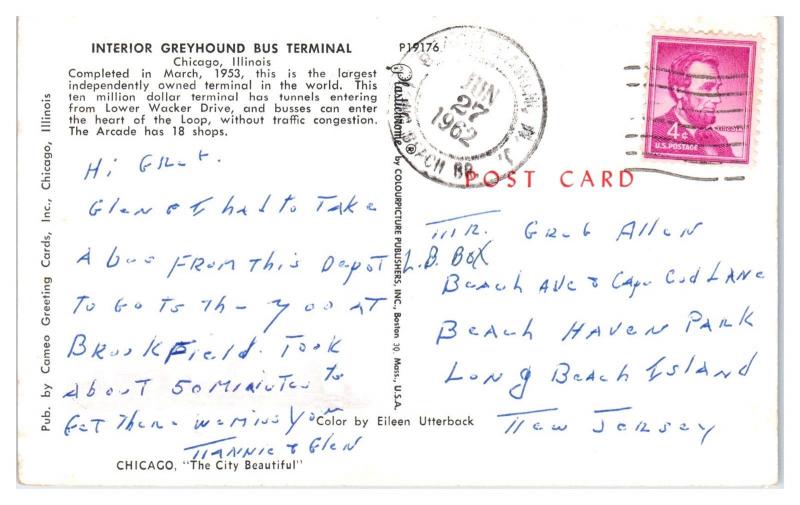 INTERIOR GREYHOUND BUS TERMINAL
Chicago, Illinois
Completed in March, 1953, this is the largest
independently owned terminal in the world. This
ten million dollar terminal has tunnels entering
from Lower Wacker Drive, and busses can enter
the heart of the Loop, without traffic congestion.
The Arcade has 18 shops.
Hi Greg.
Glen & I had to Take
A bus From This Depot
To Go To The Zoo AT
Brookfield. Took
About 50 Minutes to
Get There we miss you
Nannie & Glen
CHICAGO, "The City Beautiful"
Pub. by Cameo Greeting Cards, Inc., Chicago, Illinois
P19176
Plastichrome ® by COLOURPICTURE PUBLISHERS, INC., Boston 30, Mass., U.S.A.
Color by Eileen Utterback
JUN
27
1962
N. J.
4¢
U.S. POSTAGE
POST CARD
Mr. Greg Allen
L.B. Box
Beach Ave & Cape Cod LANE
Beach Haven Park
Long Beach Island
New Jersey